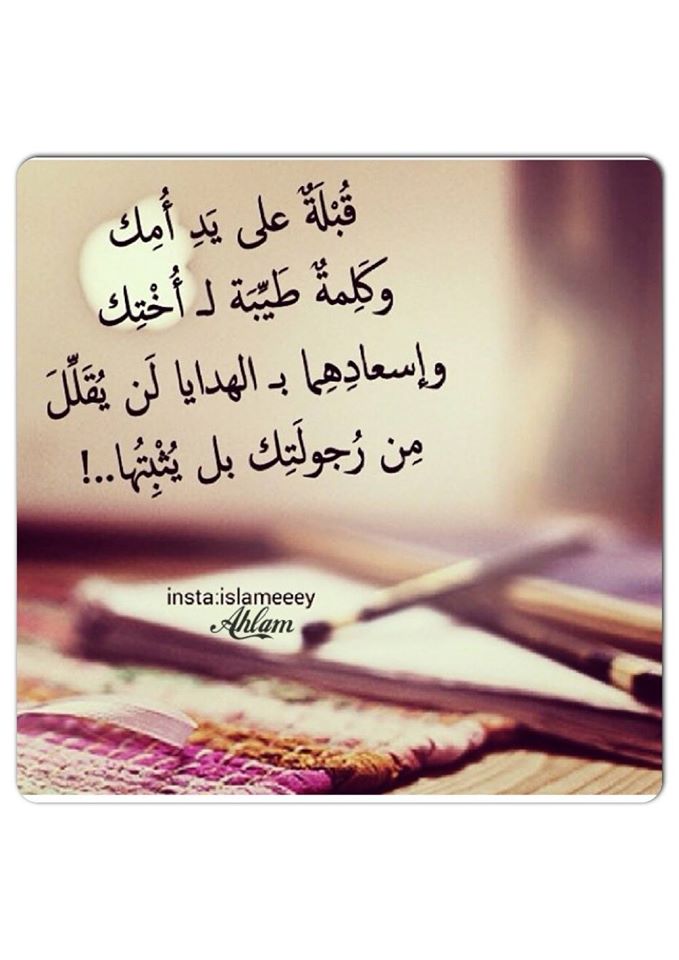 قُبْلَةٌ على يَدِ أُمِك
وكَلِمةٌ طَيِّبَة لـ أُخْتِك
وإسعادِهِما بـ الهدايا لَن يُقَلِّلَ
مِن رُجولَتِك بل يُثْبِتُها..!
insta:islameeey
Ahlam